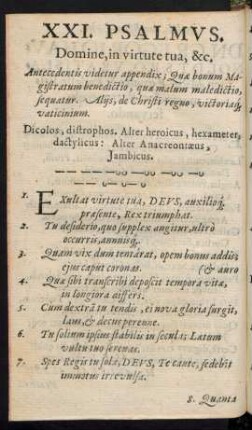 XXI. PSALMVS.
Domine, in virtute tua, &c.
Antecedentis videtur appendix; Quæ bonum Ma-
gistratum benedictio, quæ malum maledictio,
sequatur. Alijs, de Christi regno, victoriaq́;
vaticinium.
Dicolos, distrophos. Alter heroicus, hexameter,
dactylicus: Alter Anacreontæus,
Jambicus.
1. Exultat virtute tuâ, DEVS, auxilioq́;
præsente, Rex triumphat.
2. Tu desiderio, quo supplex angitur, ultrò
occurris, annuisq́;.
3. Quam vix dum tentârat, opem bonus addis;
ejus caput coronas. (& auro
4. Quæ sibi transcribi deposcit tempora vitæ,
in longiora differs.
5. Cum dextrâ tu tendis, ei nova gloria surgit,
laus, & decus perenne.
6. Tu solium ipsius stabilis in secula; Latum
vultu tuo serenas.
7. Spes Regis tu sola, DEVS, Te cante, sedebit
immotus irrevulsæ.
8. Quanta